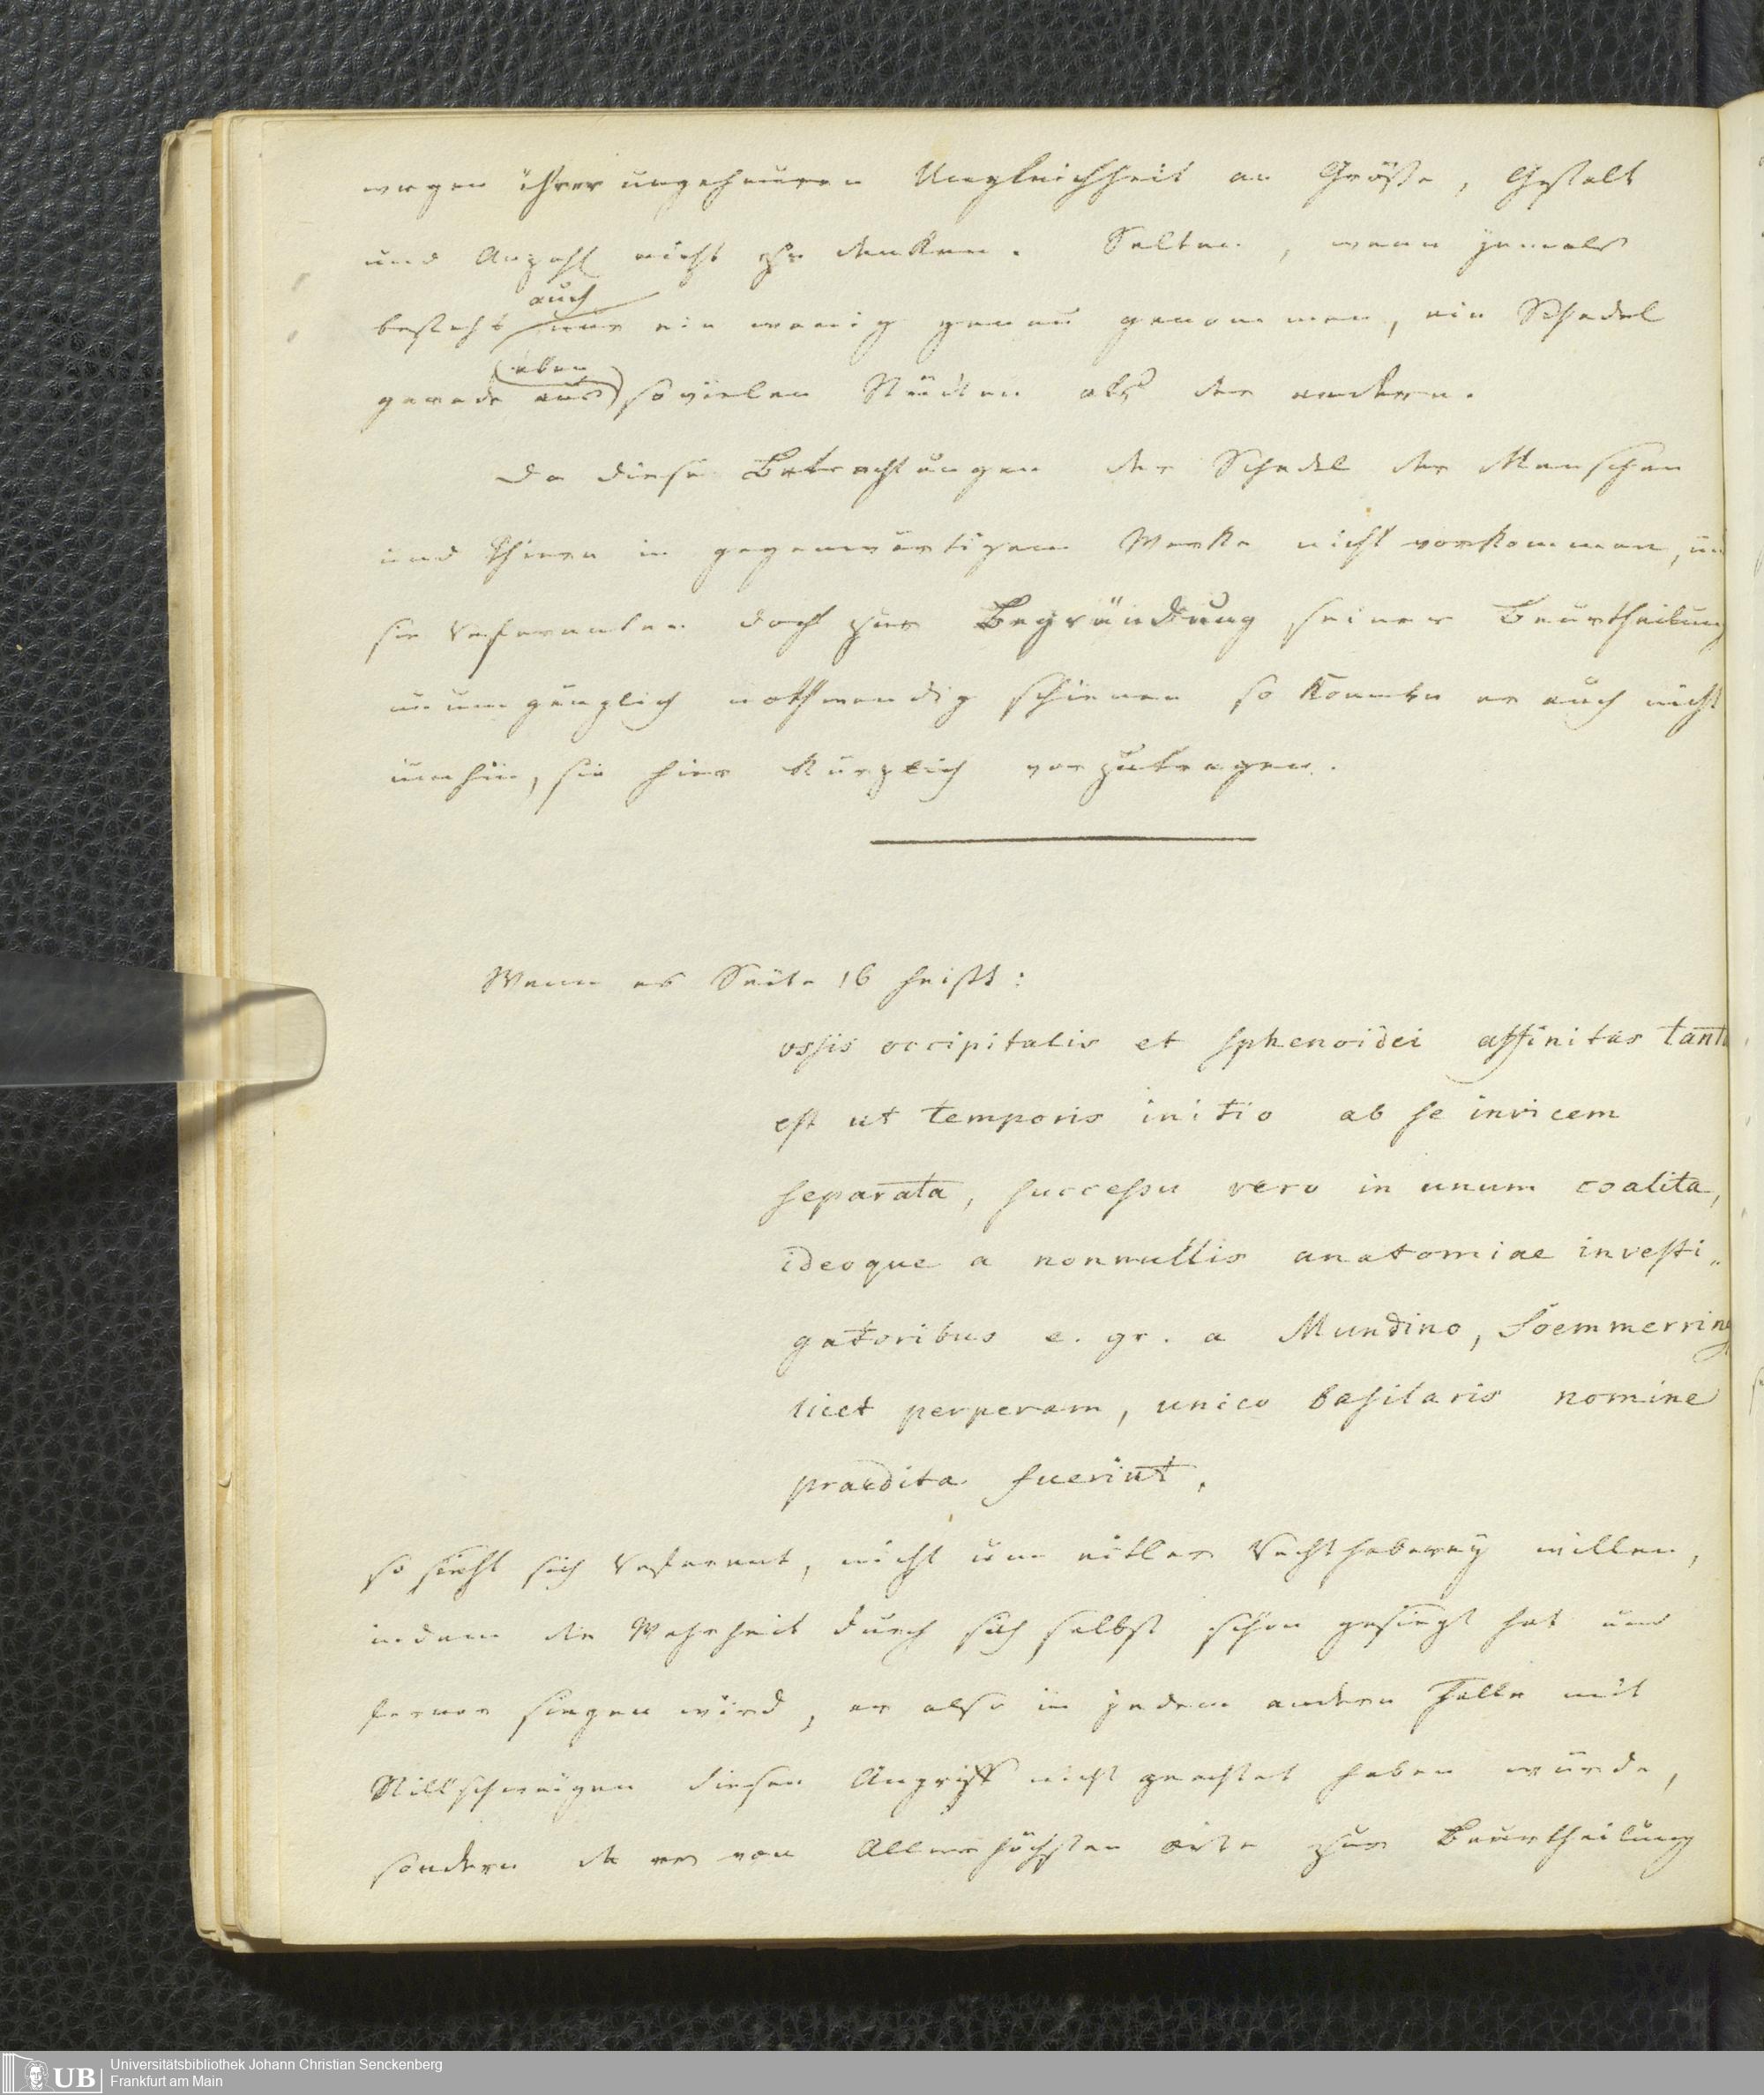 wegen ihrer ungeheuren Ungleichheit an Größe, Gestalt
und Anzahl nicht zu denken. Selten, wenn jemals
auch
besteht nur ein wenig genau genommen, ein Schedel
eben
gerade aus sovielen Stücken als der andere.
Da diese Betrachtungen der Schedel der Menschen
und Thiere in gegenwärtigem Werke nicht vorkommen, un
sie Referenten doch zur Begründung seiner Beurtheilung
unumgänglich nothwendig schienen so konnte er auch nicht
umhin, sie hier kürzlich vorzutragen.
Wenn es Seite 16 heißt:
ossis occipitalis et sphenoidei affinitas tanta
est ut temporis initio ab se invicem
separata, successu vero in unum coalita,
ideoque a nonnullis anatomiae investi„
gatoribus e. gr. a Mundino, Soemmerring
licet perperam, unico basilaris nomine
praedita fuerint,
so sieht sich Referent, nicht um eitler Rechthaberey willen,
indem die Wahrheit durch sich selbst schon gesiegt hat und
ferner siegen wird, er also in jedem andern Falle mit
Stillschweigen diesen Angriff nicht geachtet haben würde,
sondern da er von Allerhöchsten Orte zur Beurtheilung
Universitätsbibliothek Johann Christian Senckenberg
Frankfurt am Main
UB